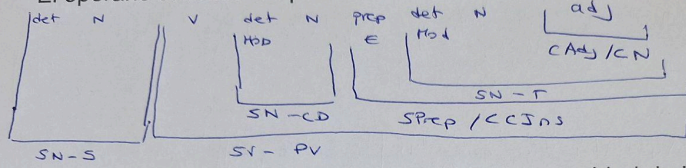 det N V det N prep det N adj
MOD E Mod
CAdj/CN
SN-T
SN-CD SPrep/CCIns
SN-S SV-PV